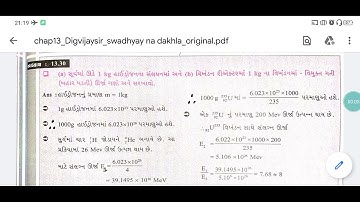 21:19
chap13_Digvijaysir_swadhyay na dakhla_original.pdf
13.30
(a) સૂર્યમાં ઊંડે 1 kg હાઇડ્રોજનના સંલયનમાં અને (b) વિખંડન રીએક્ટરમાં 1 kg ના વિખંડનમાં - વિમુક્ત થતી
ઊર્જા ગણો અને સરખાવો.
Ans : હાઈડ્રોજનનું પ્રમાણ m = 1kg
∴ 1g હાઈડ્રોજનમાં 6.023×10²³ પરમાણુઓ હશે.
∴ 1000g હાઈડ્રોજનમાં 6.023×10²⁶ પરમાણુઓ હશે.
∴ સૂર્યમાં ચાર ¹₁H જોડાયને ⁴₂He બનાવે છે. આ
પ્રક્રિયામાં 26 Mev ઊર્જા ઉત્પન્ન થાય છે.
માટે સંલગ્ન ઊર્જા E₁ = 6.023×10²⁶ / 4
= 39.1495 × 10²⁶ MeV
∴ 1000 g ²³⁵U માં = 6.023×10²³ × 1000 / 235 પરમાણુઓ હશે.
એક U નું પરમાણુ 200 Mev ઊર્જા ઉત્પન્ન થાય છે.
∴ ₉₂U²³⁵ વિખંડન સાથે સંલગ્ન ઊર્જા
E₂ = 6.022×10²³ ×1000 × 200 / 235
= 5.106 × 10²⁶ MeV
E₁ / E₂ = 39.1495×10²⁶ / 5.10⁶ ×10²⁶ = 7.68 ≈ 8